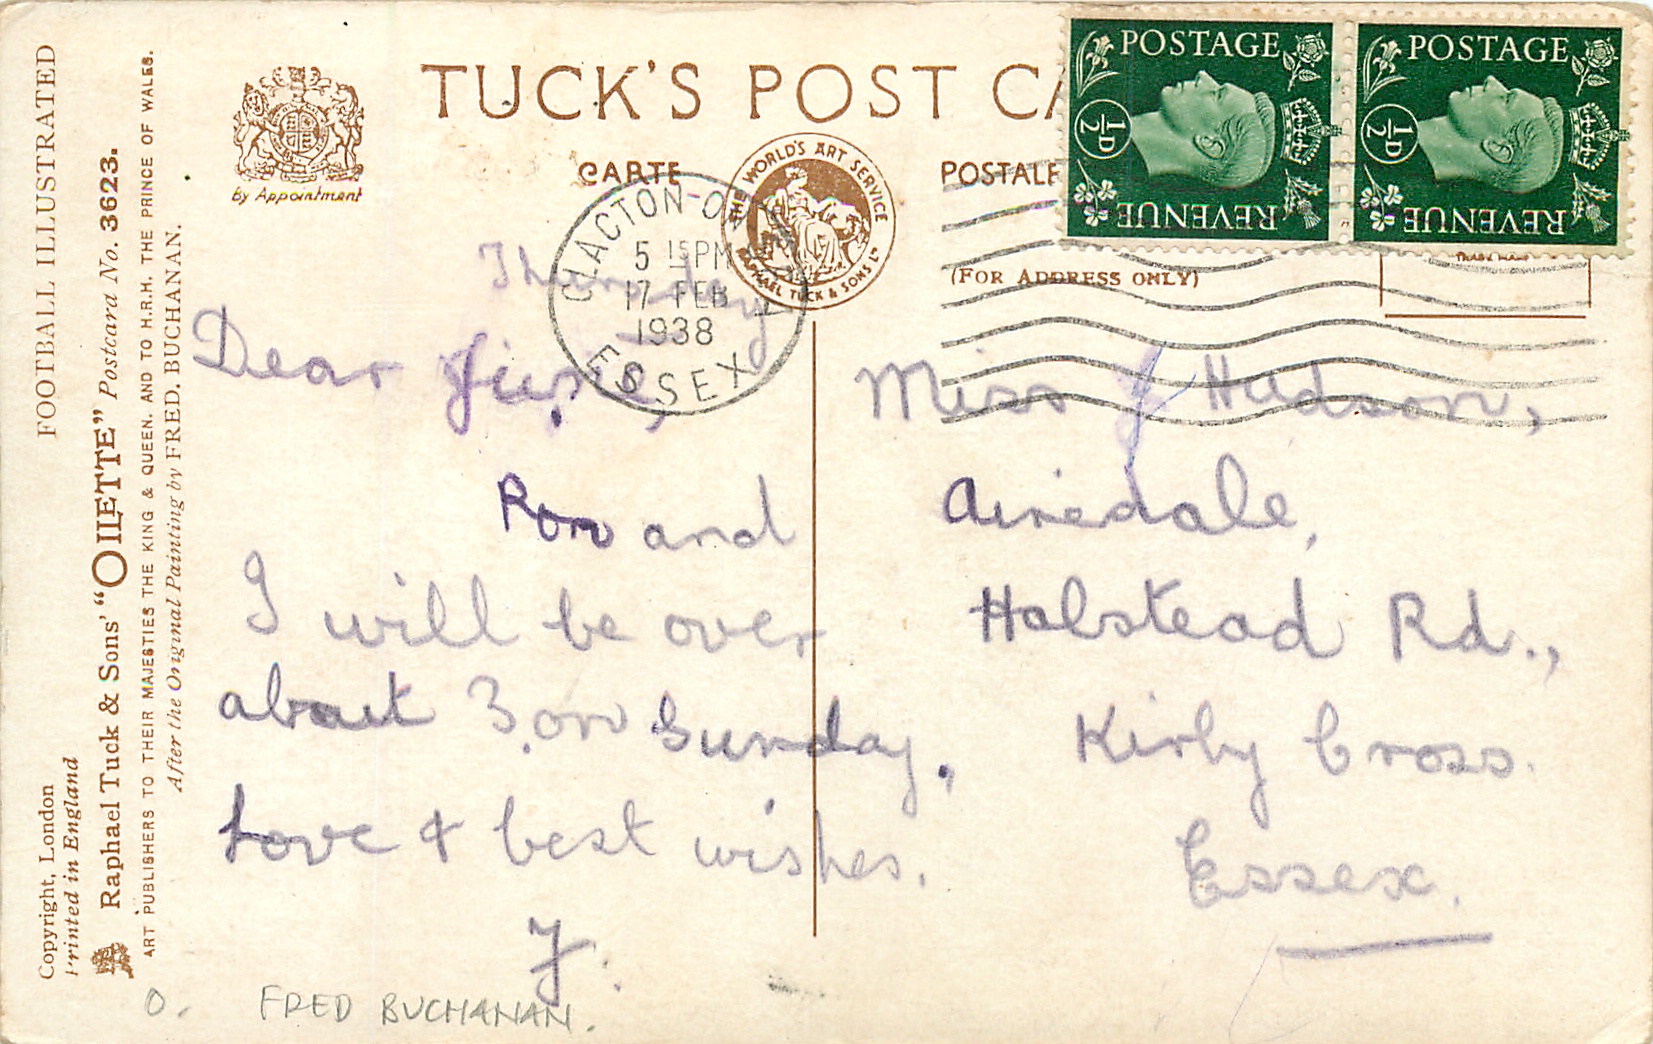 TUCK'S POST CA
CARTE POSTALE
By Appointment
THE WORLD'S ART SERVICE
RAPHAEL TUCK & SONS Lᵀᴰ
(FOR ADDRESS ONLY)
POSTAGE
½D
REVENUE
POSTAGE
½D
REVENUE
CLACTON-ON-SEA
5 15 PM
17 FEB
1938
ESSEX
FOOTBALL ILLUSTRATED
Copyright, London
Printed in England
Raphael Tuck & Sons' "OILETTE" Postcard No. 3623.
ART PUBLISHERS TO THEIR MAJESTIES THE KING & QUEEN, AND TO H.R.H. THE PRINCE OF WALES.
After the Original Painting by FRED. BUCHANAN.
Thursday
Dear
Ron and
I will be over
about 3.0 on Sunday.
Love & best wishes.
J.
Miss J Hudson,
Airedale,
Halstead Rd.,
Kirby Cross.
Essex.
O. FRED BUCHANAN.